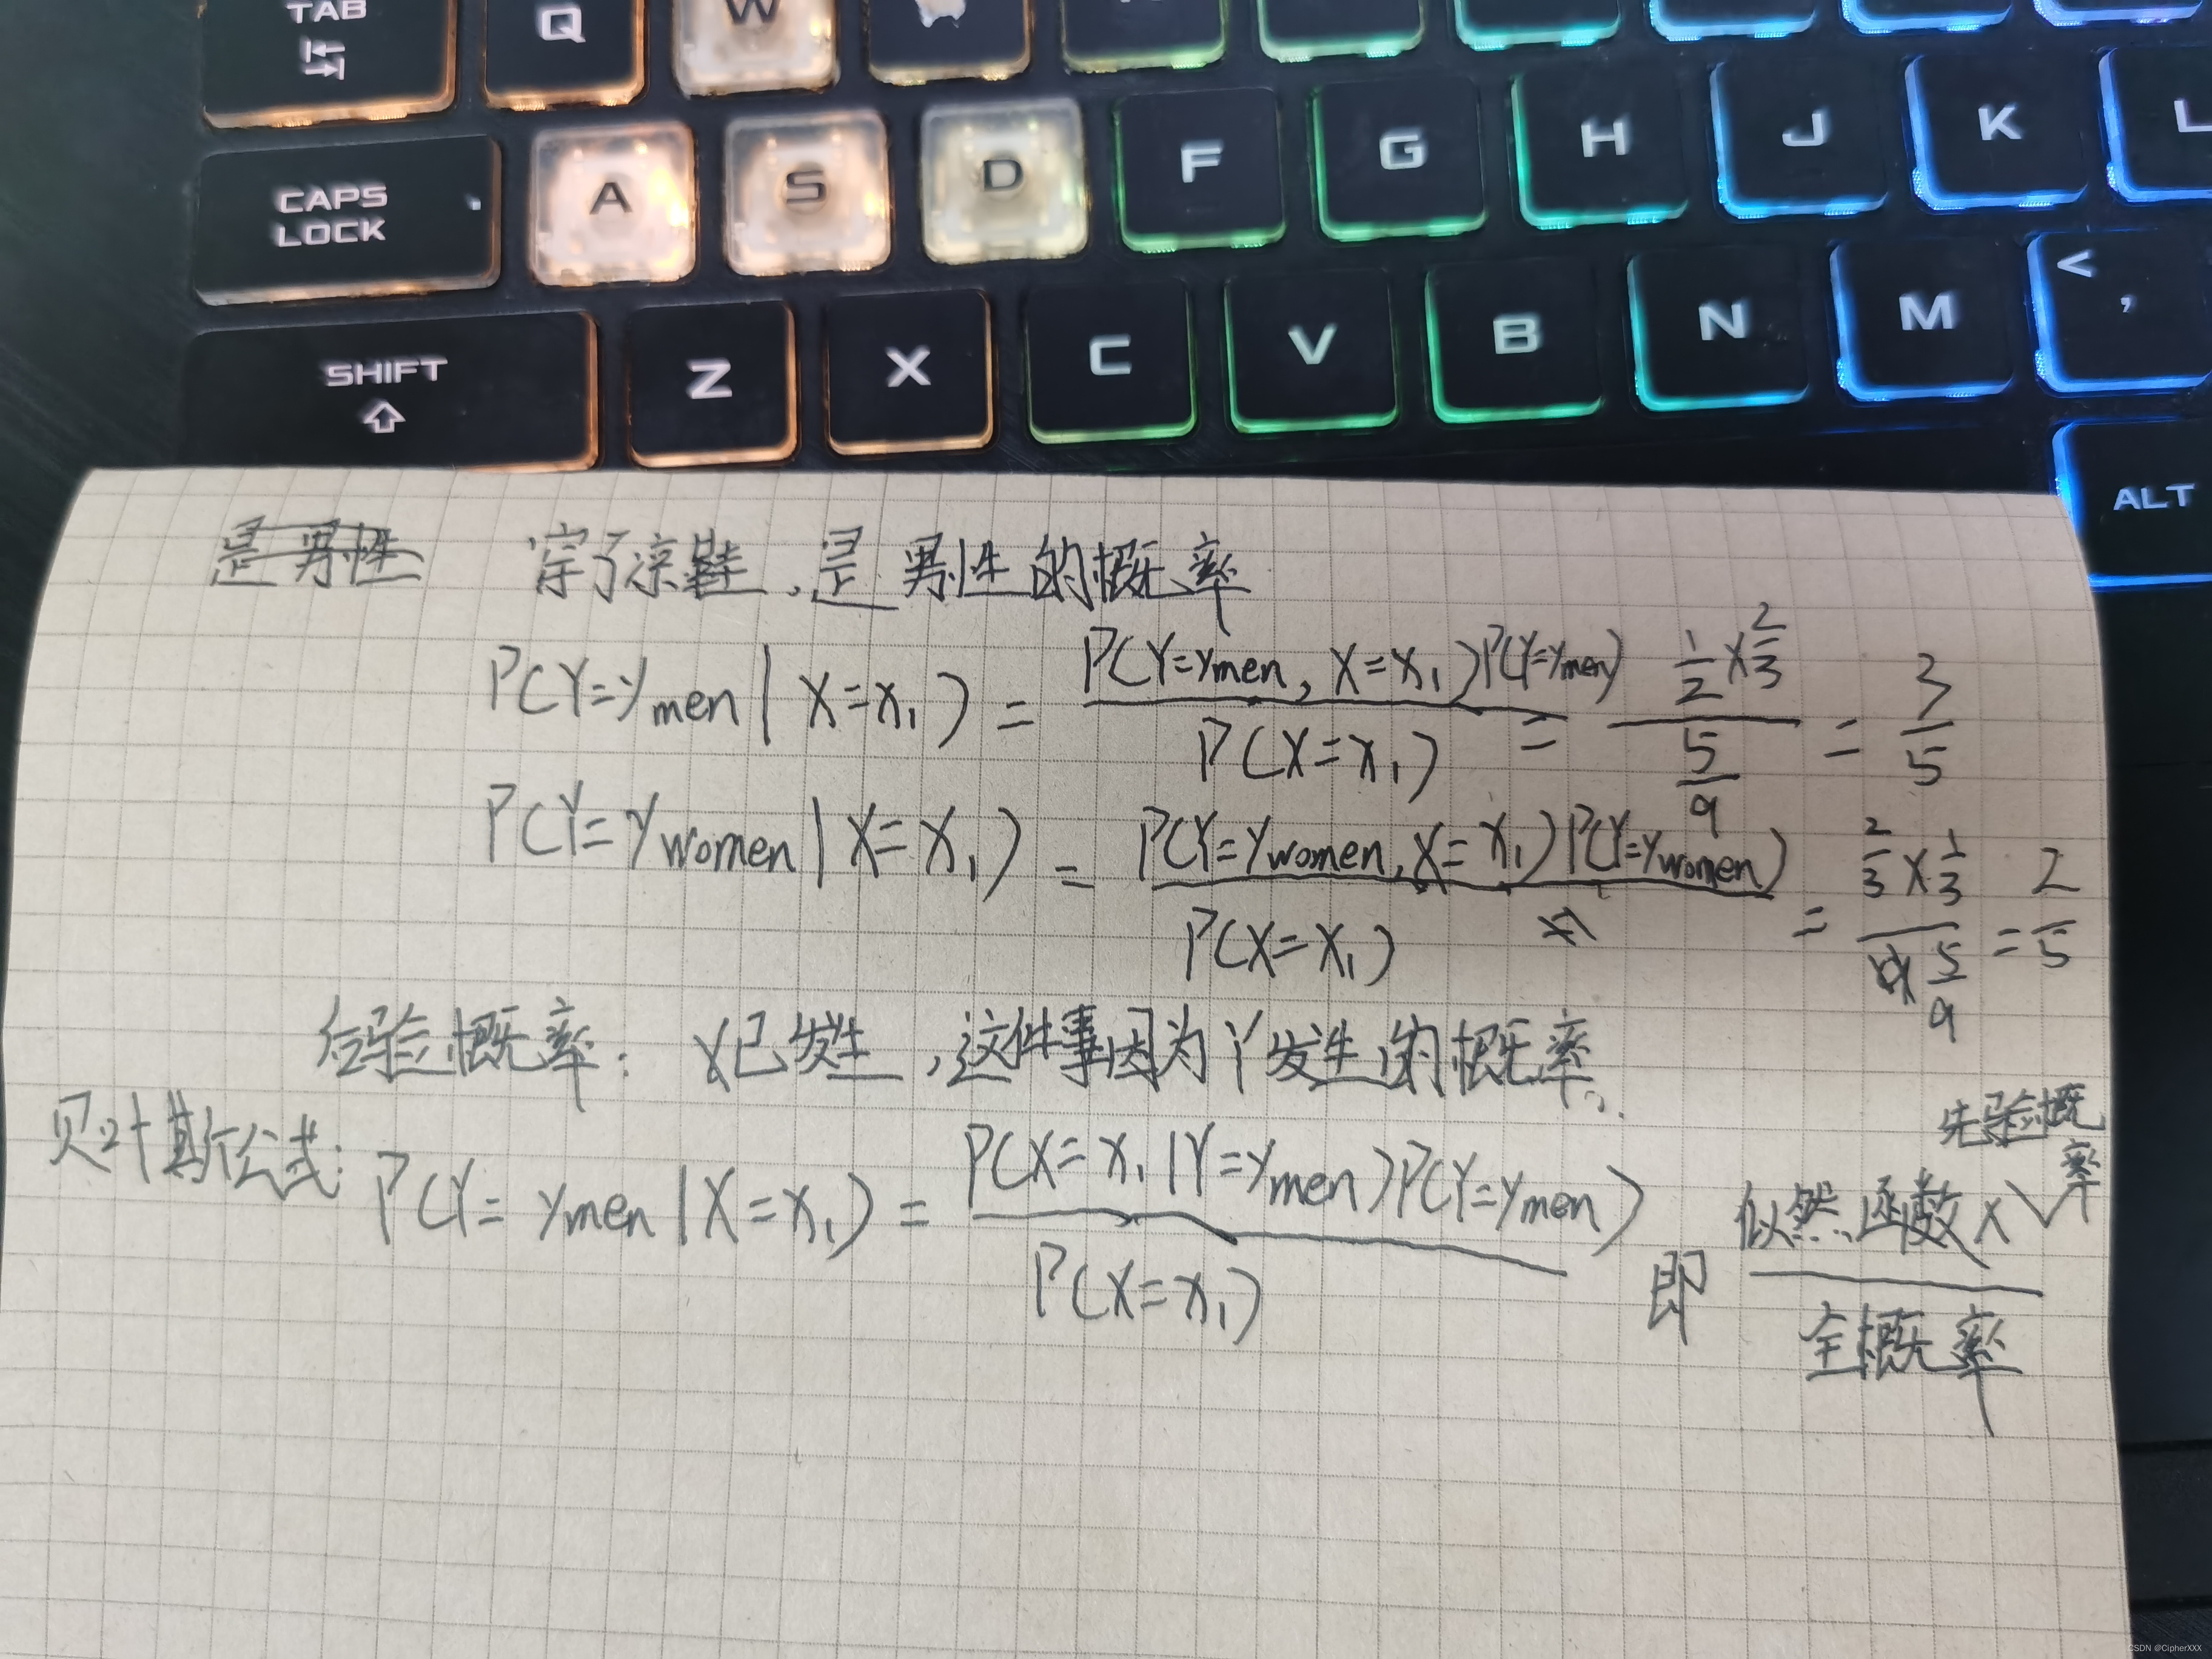 TAB Q W
CAPS LOCK A S D F G H J K L
SHIFT Z X C V B N M < ,
ALT
是男性 穿了凉鞋,是男性的概率
P(Y=y_men | X=x₁) = P(Y=y_men, X=x₁)P(Y=y_men) / P(X=x₁) = (1/2 × 2/3) / (5/9) = 3/5
P(Y=y_women | X=x₁) = P(Y=y_women, X=x₁)P(Y=y_women) / P(X=x₁) = (2/3 × 1/3) / (5/9) = 2/5
验概率: X已发生,这件事因为Y发生的概率。
贝叶斯公式: P(Y=y_men | X=x₁) = P(X=x₁ | Y=y_men)P(Y=y_men) / P(X=x₁) 即 似然函数 × 先验概率 / 全概率
CSDN @CipherXXX